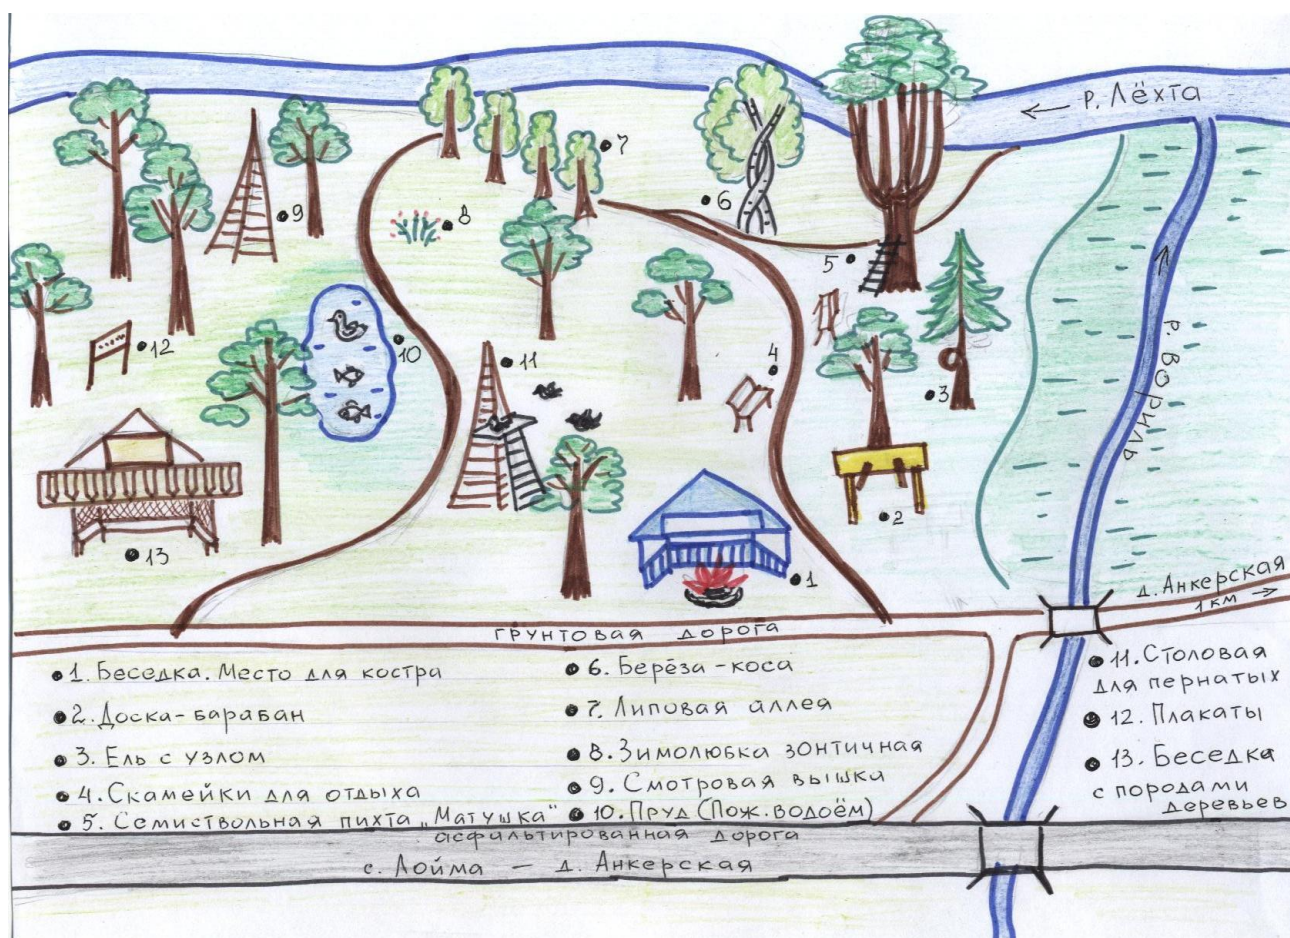 ← р. Лёхта
7
6
9
8
5
10
12
11
4
3
р. Вориль
2
13
1
д. Анкерская
1 км →
грунтовая дорога
1. Беседка. Место для костра
2. Доска-барабан
3. Ель с узлом
4. Скамейки для отдыха
5. Семиствольная пихта „Матушка“
6. Берёза-коса
7. Липовая аллея
8. Зимолюбка зонтичная
9. Смотровая вышка
10. Пруд (Пож. водоём)
11. Столовая
для пернатых
12. Плакаты
13. Беседка
с породами
деревьев
асфальтированная дорога
с. Лойма — д. Анкерская